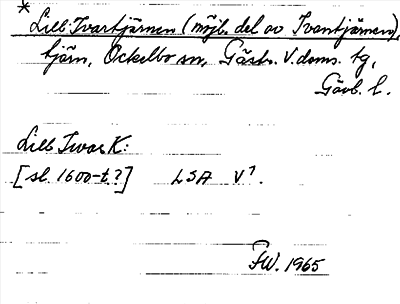 *
Lill-Ivartjärnen (möjl. del av Ivantjärnen),
tjärn, Ockelbo sn, Gästr. V. doms. tg,
Gävl. l.
Lill Iwar K:
[sl. 1600-t.?] LSA V 1.
FW. 1965